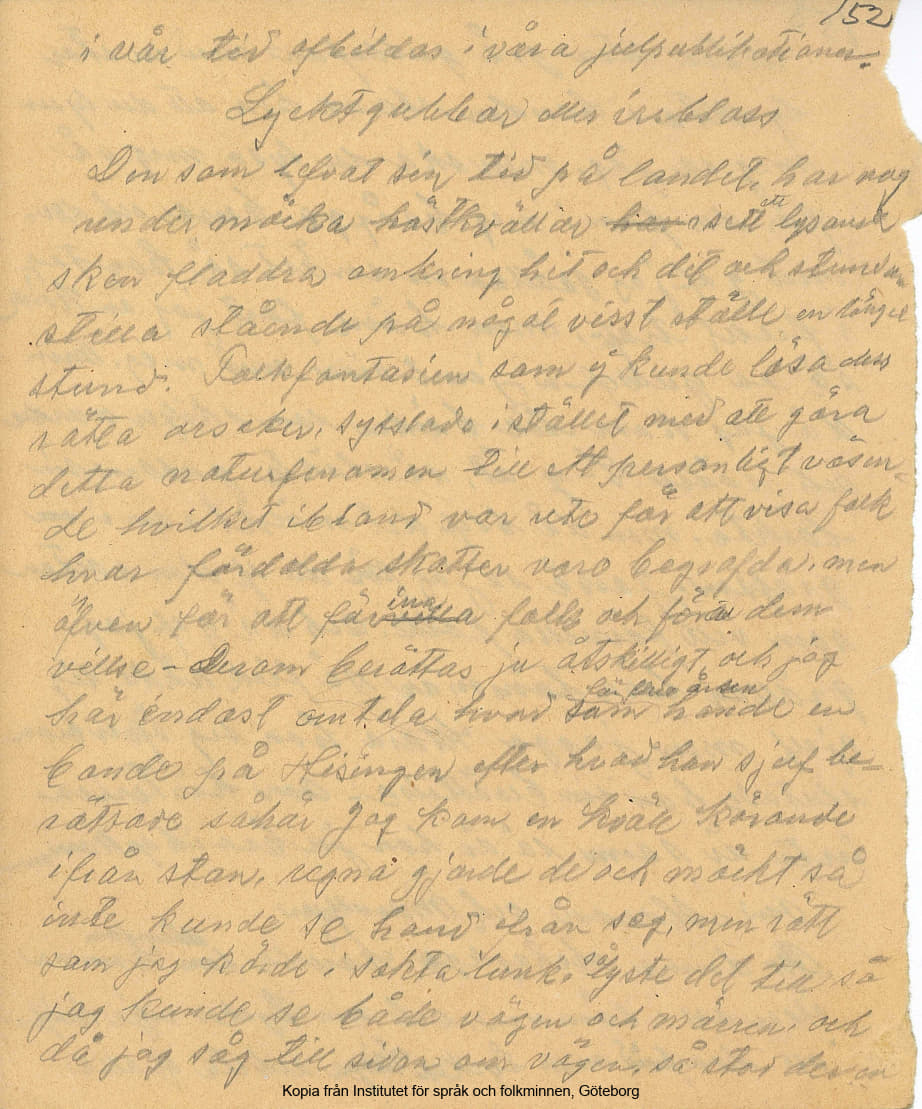 152
i vår tid afbildas i våra julpublikationer.
Lycktgubbar eller irrbloss
Den som lefvat sin tid på landet, har nog
under mörka höstkvällar har sett ett lysande
sken fladdra omkring hit och dit och stundom
stilla stående på något visst ställe en längre
stund. Folkfantasien som ej kunde lösa dess
rätta orsaker, sysslade i stället med att göra
detta naturfenomen till ett personligt väsen-
de hvilket ibland var ute för att visa folk
hvar fördolda skatter voro begrafda, men
äfven för att förvilla irra folk och föra dem
vilse – Derom berättas ju åtskilligt, och jag
här endast omtala hvad som för flera år sen hände en
bonde på Hisingen efter hvad han sjelf be-
rättade såhär Jag kom en kväll körande
ifrån stan, regna gjorde de och mörkt så
inte kunde se hand ifrån seg, men rätt
som jag körde i sakta lunk, så lyste det till så
jag kunde se både vägen och märren, och
då jag såg till sidan om vägen, så stod der en
Kopia från Institutet för språk och folkminnen, Göteborg